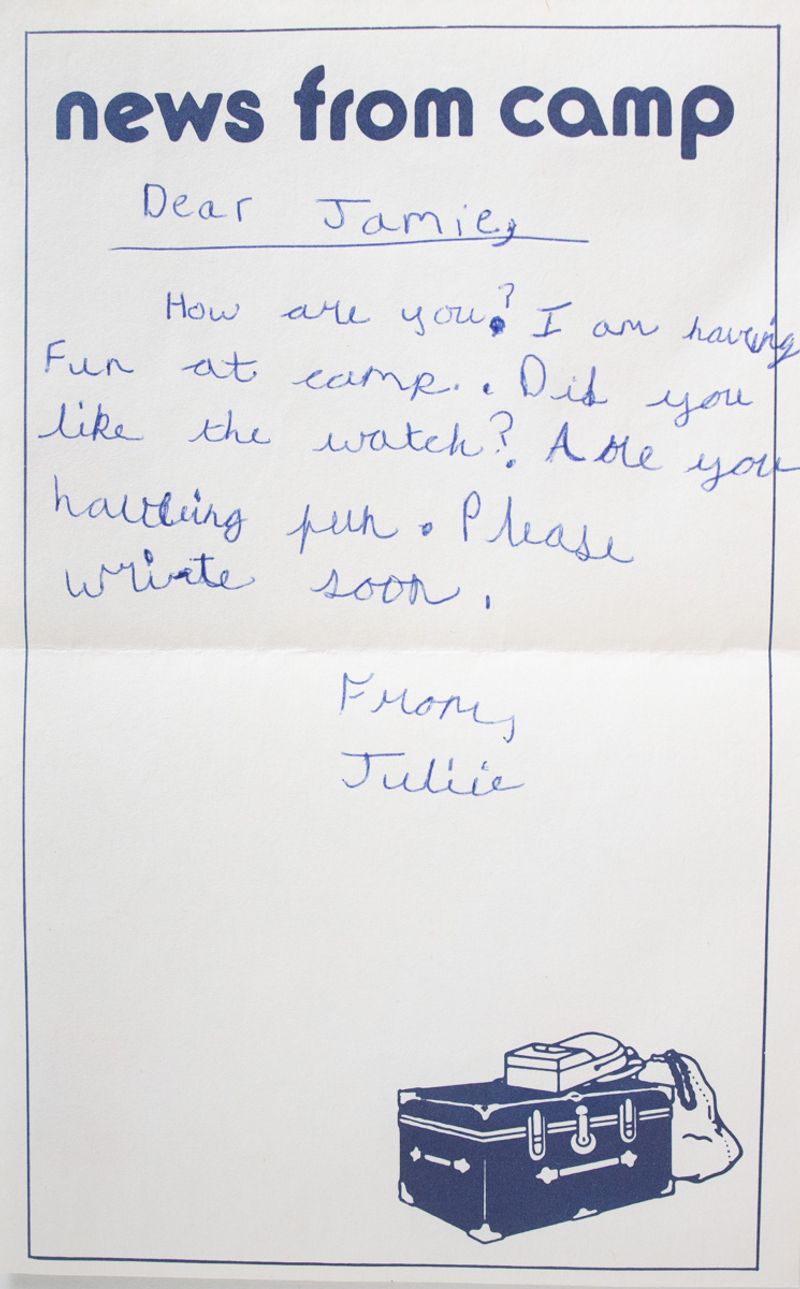 news from camp
Dear Jamie,
How are you? I am having
Fun at camp. . Did you
like the watch? Are you
having fun. Please
write soon.
From,
Juliie